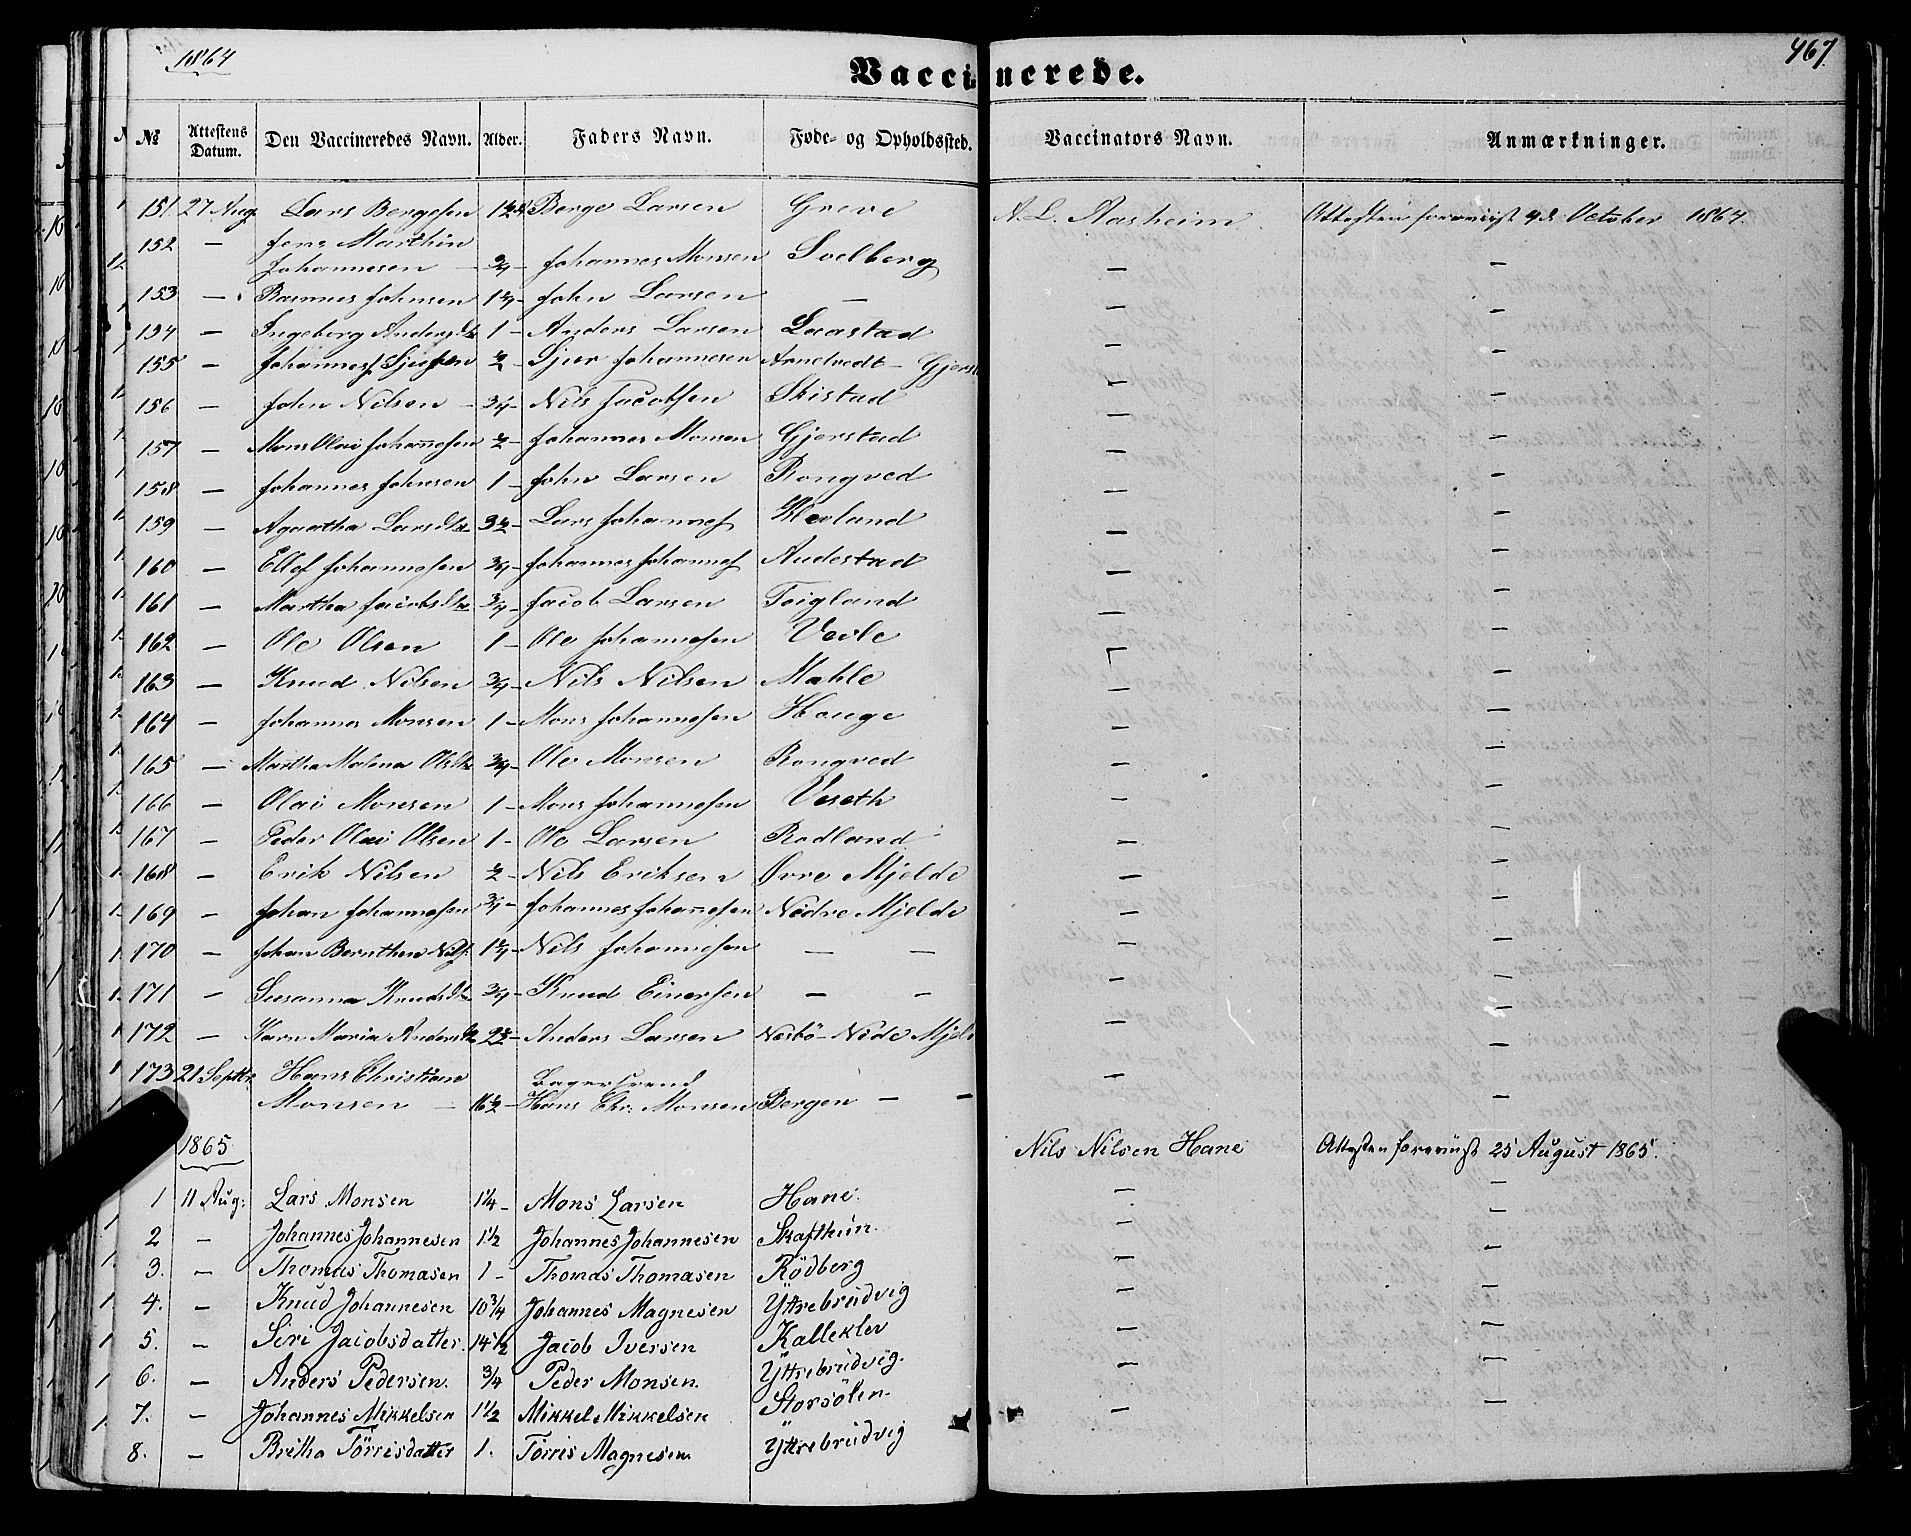 1864
Vaccinerede.
467.
№ Attestens Datum. Den Vaccineredes Navn. Alder. Faders Navn. Føde- og Opholdssted. Vaccinators Navn. Anmærkninger.
151. 27 Aug. Lars Bergesen Berge Larsen Greve A. L. Aasheim Attesten foreviist 4de October 1864.
152 — Jens Marthin
Johannesen — 3/4 — Johannes Monsen Solberg — —
153 — Rasmus Johnsen John Larsen — — —
154 — Ingeborg Andersdtr 1 — Anders Larsen Laastad — —
155 — Johannes Sjursen 1/2 — Sjur Johannesen Arnetvedt — — —
156 — John Nilsen — 3/4 — Nils Jacobsen Skistad — —
157 — Mons Olai Johannesen 1/2 — Johannes Monsen Gjerstad — —
158 — Johannes Johnsen 1 — John Larsen Rongved — —
159 — Agaatha Larsdtr 3 1/2 — Lars Johannes Kleiland — —
160 — Ellef Johannesen 3/4 — Johannes Johannes Andestad — —
161 — Martha Jacobsdtr 3/4 — Jacob Larsen Teigland — —
162 — Ole Olsen 1 — Ole Johannesen Vevle — —
163 — Knud Nilsen 3/4 — Nils Nilsen Mahle — —
164 — Johannes Monsen 1 — Mons Johannesen Houge — —
165 — Martha Malena Olsdtr 3/4 — Ole Monsen Rongved — —
166 — Olai Monsen 1 — Mons Johannesen Veseth — —
167 — Peder Olai Olsen 1 — Ole Larsen Rødland — —
168 — Erik Nilsen 1/2 — Nils Eriksen Øvre Mjelde — —
169 — Johan Johannesen 3/4 — Johannes Johannesen Nedre Mjelde — —
170 — Johan Bernthen Nils. Nils Johannesen — — — —
171 — Susanna Knudsdtr 3/4 — Knud Einersen — — — —
172 — Karn Maria Andersdtr Anders Larsen Nesbö — Nede Mjeld — —
173 21 Septbr. Hans Christian Bagersvend
Monsen — 16 1/2 — Hans Chr. Monsen Bergen — — — —
1865 Nils Nilsen Hane Attesten foreviist 25 August 1865.
1 11 Aug: Lars Monsen 1 1/4 — Mons Larsen Hane. — —
2 — Johannes Johannesen 1 1/2 Johannes Johannesen Skafthun. — —
3. — Thomas Thomasen 1 — Thomas Thomasen Rödberg — —
4. — Knud Johannesen 10 3/4 Johannes Magnesen Yttrebrudvig — —
5. — Siri Jacobsdatter. 14 1/2 Jacob Iversen Kallekler — —
6. — Anders Pedersen. 3/4 Peder Monsen. Yttrebrudvig. — —
7. — Johannes Mikkelsen 1 1/2 Mikkel Mikkelsen Storsölen — —
8. — Britha Törrisdatter 1. Törris Magnesen. Yttrebrudvig — —